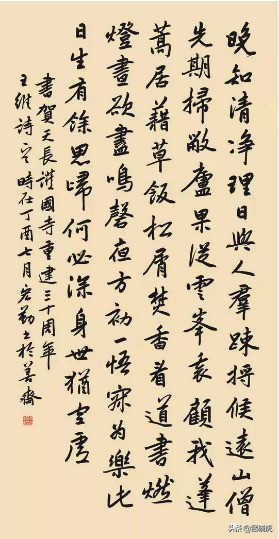 晚知清净理日與人羣踈將候遠山僧
先期掃敝廬果從雲峯裏顧我蓬
蒿居藉草飯松屑焚香看道書燃
燈晝欲盡鳴磬夜方初一悟寂為樂此
日生有餘思歸何必深身世猶空虛
書賀天長護國寺重建三十周年
王維詩 時在丁酉七月 於善齋
头条